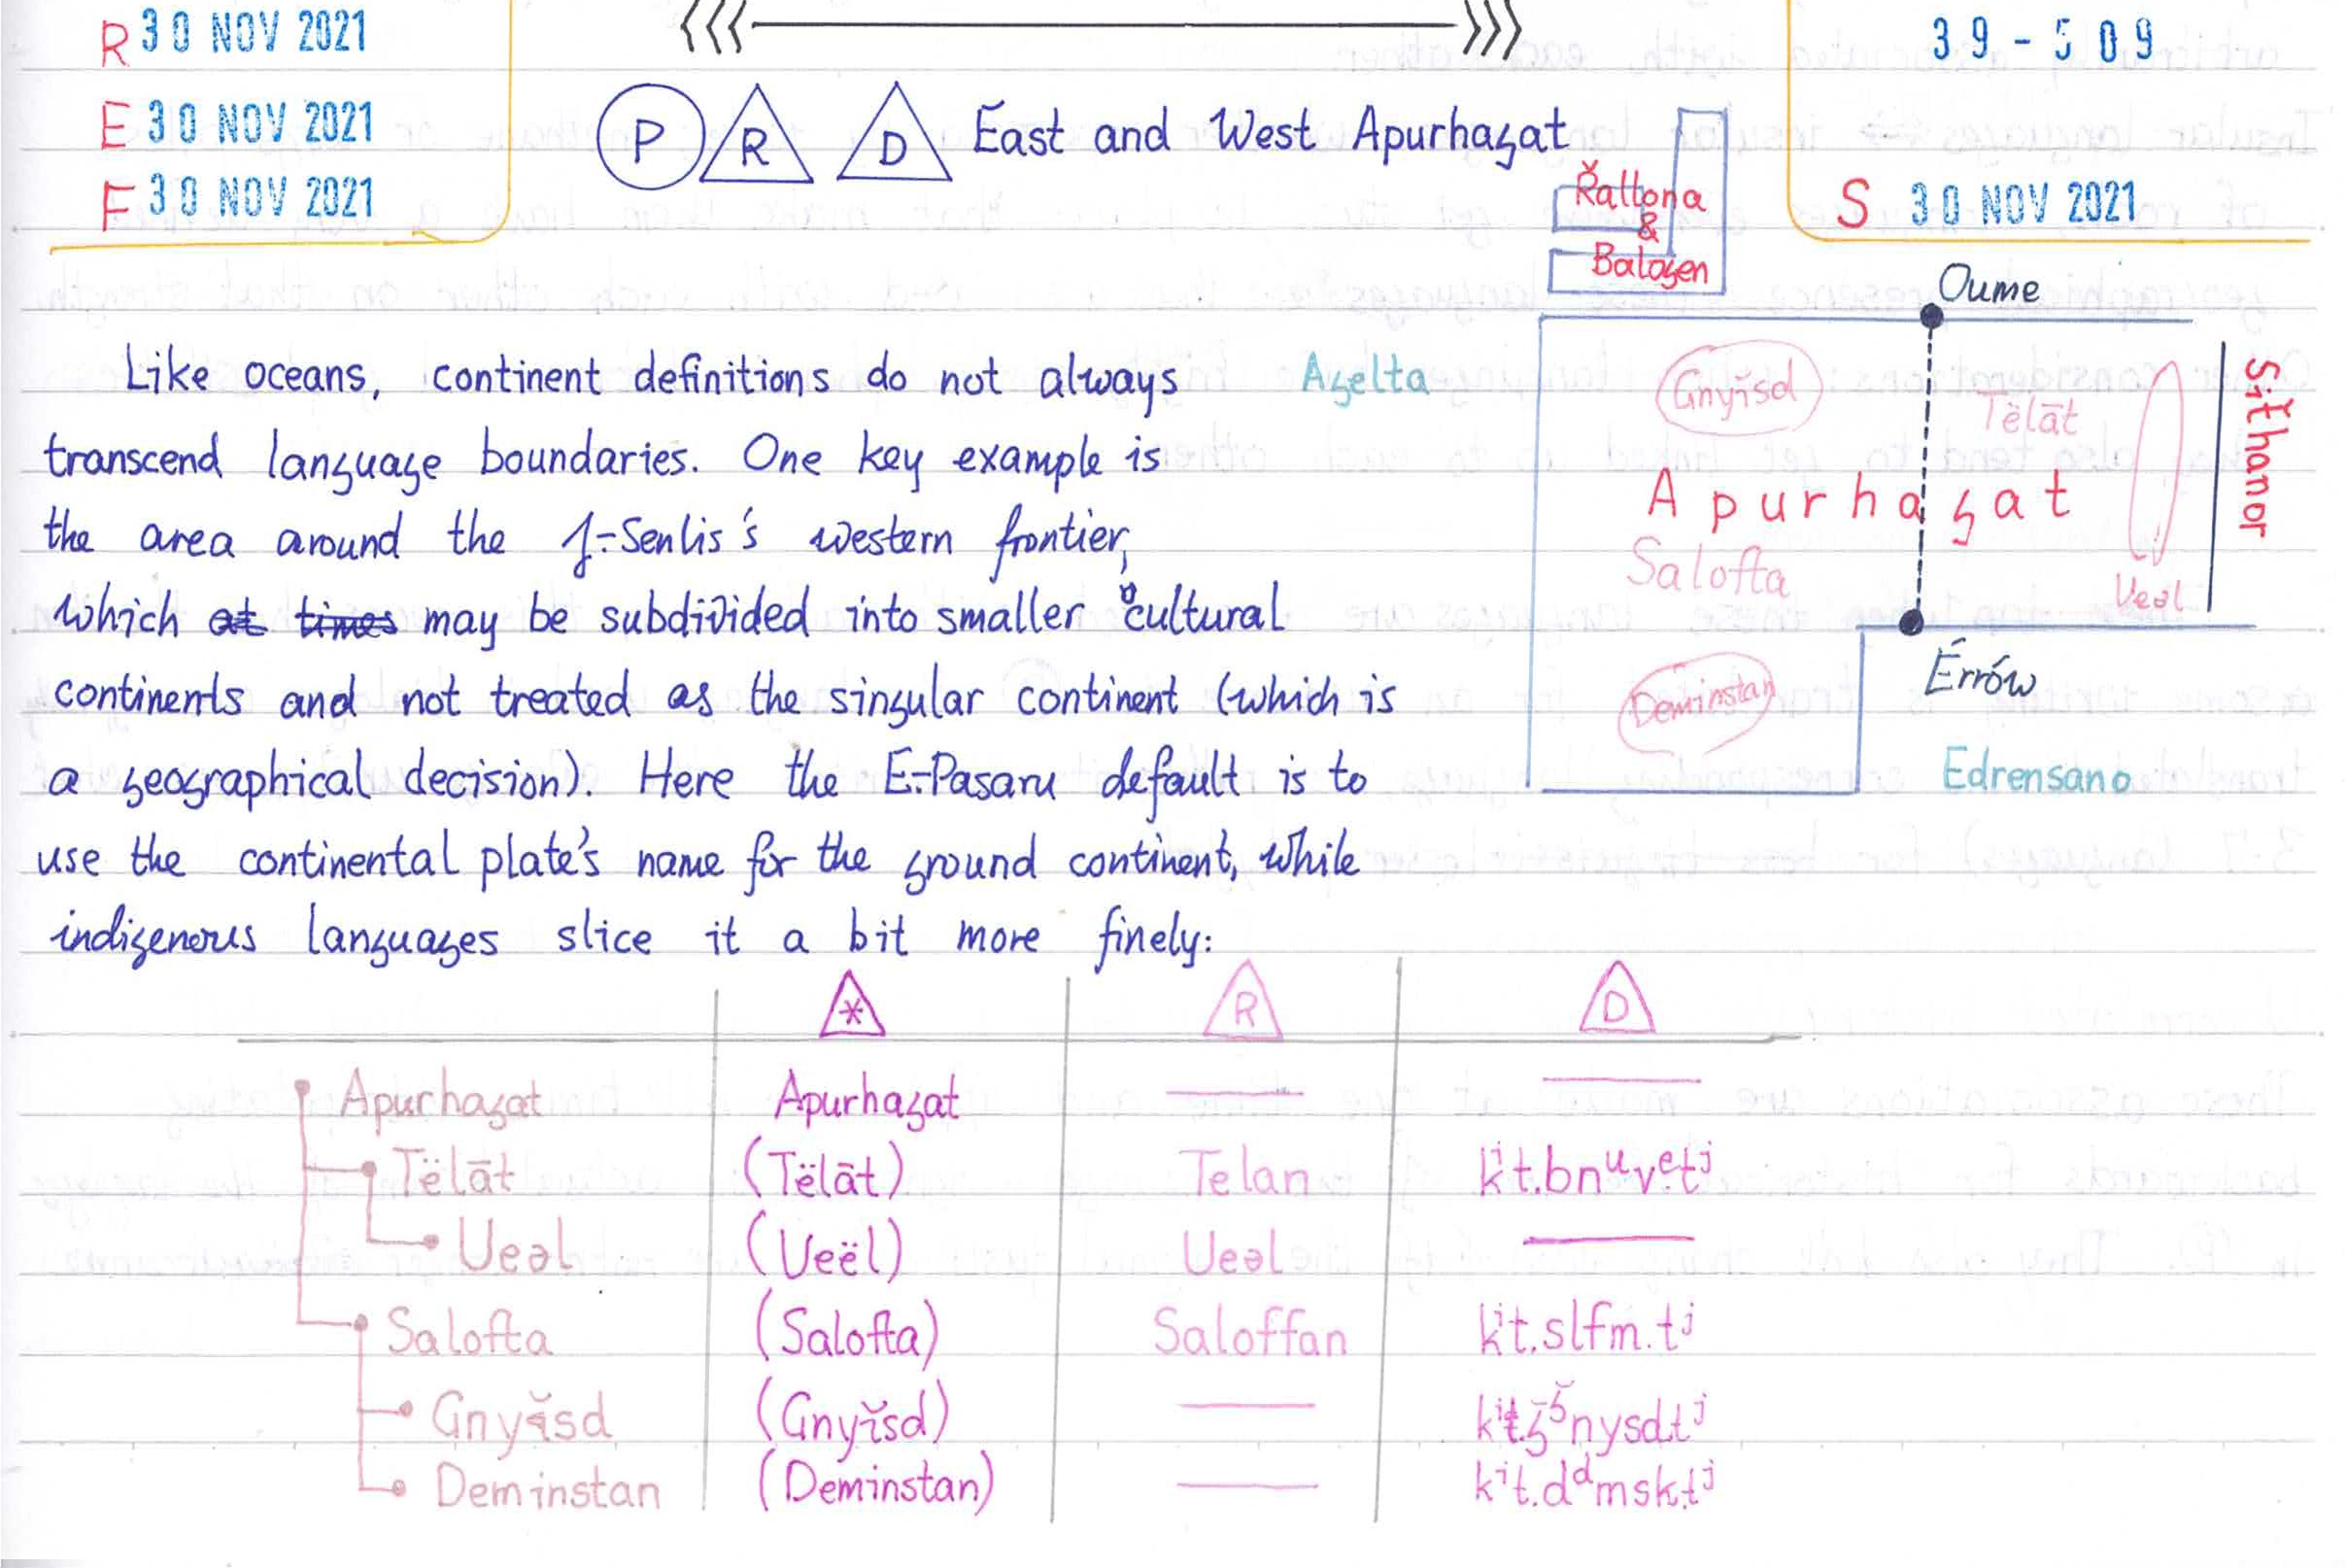 R 30 NOV 2021
E 30 NOV 2021
F 30 NOV 2021
39-509
S 30 NOV 2021
P R D East and West Apurhagat
Řallona
&
Balagen
Oume
Agelta
Gnyĭsd
Tëlāt
Sitȟanor
Apurhagat
Salofta
Veəl
Deminstan
Érrów
Edrensano
Like oceans, continent definitions do not always
transcend language boundaries. One key example is
the area around the -Senlis's western frontier,
which at times may be subdivided into smaller cultural
continents and not treated as the singular continent (which is
a geographical decision). Here the E-Pasaru default is to
use the continental plate's name for the ground continent, while
indigenous languages slice it a bit more finely:
* R D
Apurhagat Apurhagat — —
Tëlāt (Tëlāt) Telan kⁱt.bnᵘvᵉtʲ
Ueəl (Veël) Ueəl —
Salofta (Salofta) Saloffan kⁱt.slfm.tʲ
Gnyĭsd (Gnyĭsd) —
Deminstan (Deminstan) — kⁱt.dᵈmsk.tʲ